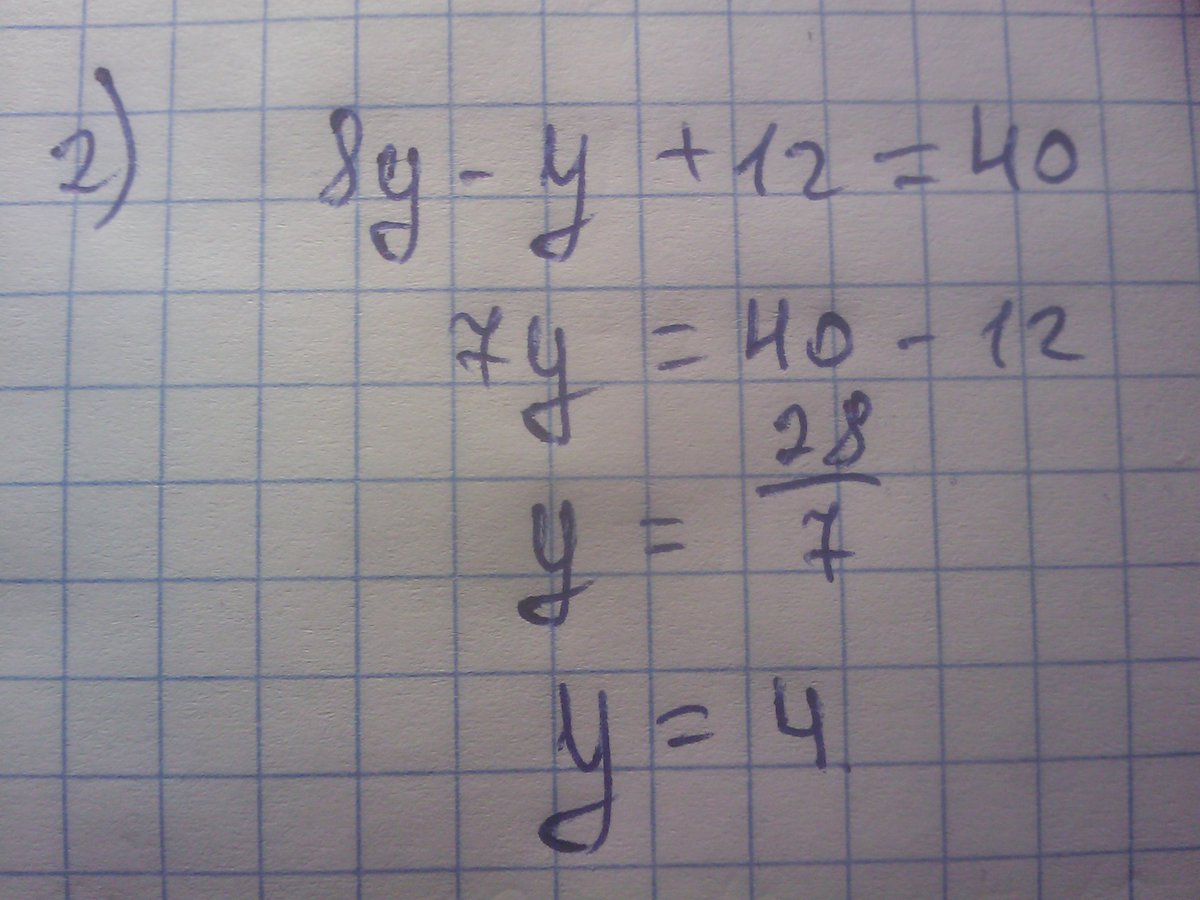 2) 8y - y + 12 = 40
7y = 40 - 12
y = 28/7
y = 4